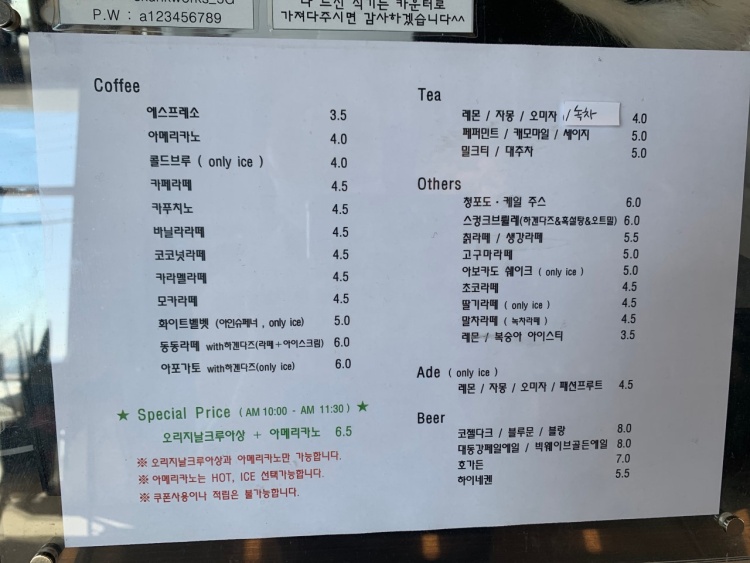 P.W : a123456789
가져다주시면 감사하겠습니다^^
Coffee
에스프레소 3.5
아메리카노 4.0
콜드브루 ( only ice ) 4.0
카페라떼 4.5
카푸치노 4.5
바닐라라떼 4.5
코코넛라떼 4.5
카라멜라떼 4.5
모카라떼 4.5
화이트벨벳 (아인슈페너 , only ice) 5.0
동동라떼 with하겐다즈(라떼+아이스크림) 6.0
아포가토 with하겐다즈(only ice) 6.0
★ Special Price ( AM 10:00 - AM 11:30 ) ★
오리지날크루아상 + 아메리카노 6.5
※ 오리지날크루아상과 아메리카노만 가능합니다.
※ 아메리카노는 HOT, ICE 선택가능합니다.
※ 쿠폰사용이나 적립은 불가능합니다.
Tea
레몬 / 자몽 / 오미자 / 녹차 4.0
페퍼민트 / 캐모마일 / 세이지 5.0
밀크티 / 대추차 5.0
Others
청포도 · 케일 주스 6.0
스컹크브륄레(하겐다즈&흑설탕&오트밀) 6.0
칡라떼 / 생강라떼 5.5
고구마라떼 5.0
아보카도 쉐이크 ( only ice ) 5.0
초코라떼 4.5
딸기라떼 ( only ice ) 4.5
말차라떼 ( 녹차라떼 ) 4.5
레몬 / 복숭아 아이스티 3.5
Ade ( only ice )
레몬 / 자몽 / 오미자 / 패션프루트 4.5
Beer
코젤다크 / 블루문 / 블랑 8.0
대동강페일에일 / 빅웨이브골든에일 8.0
호가든 7.0
하이네켄 5.5